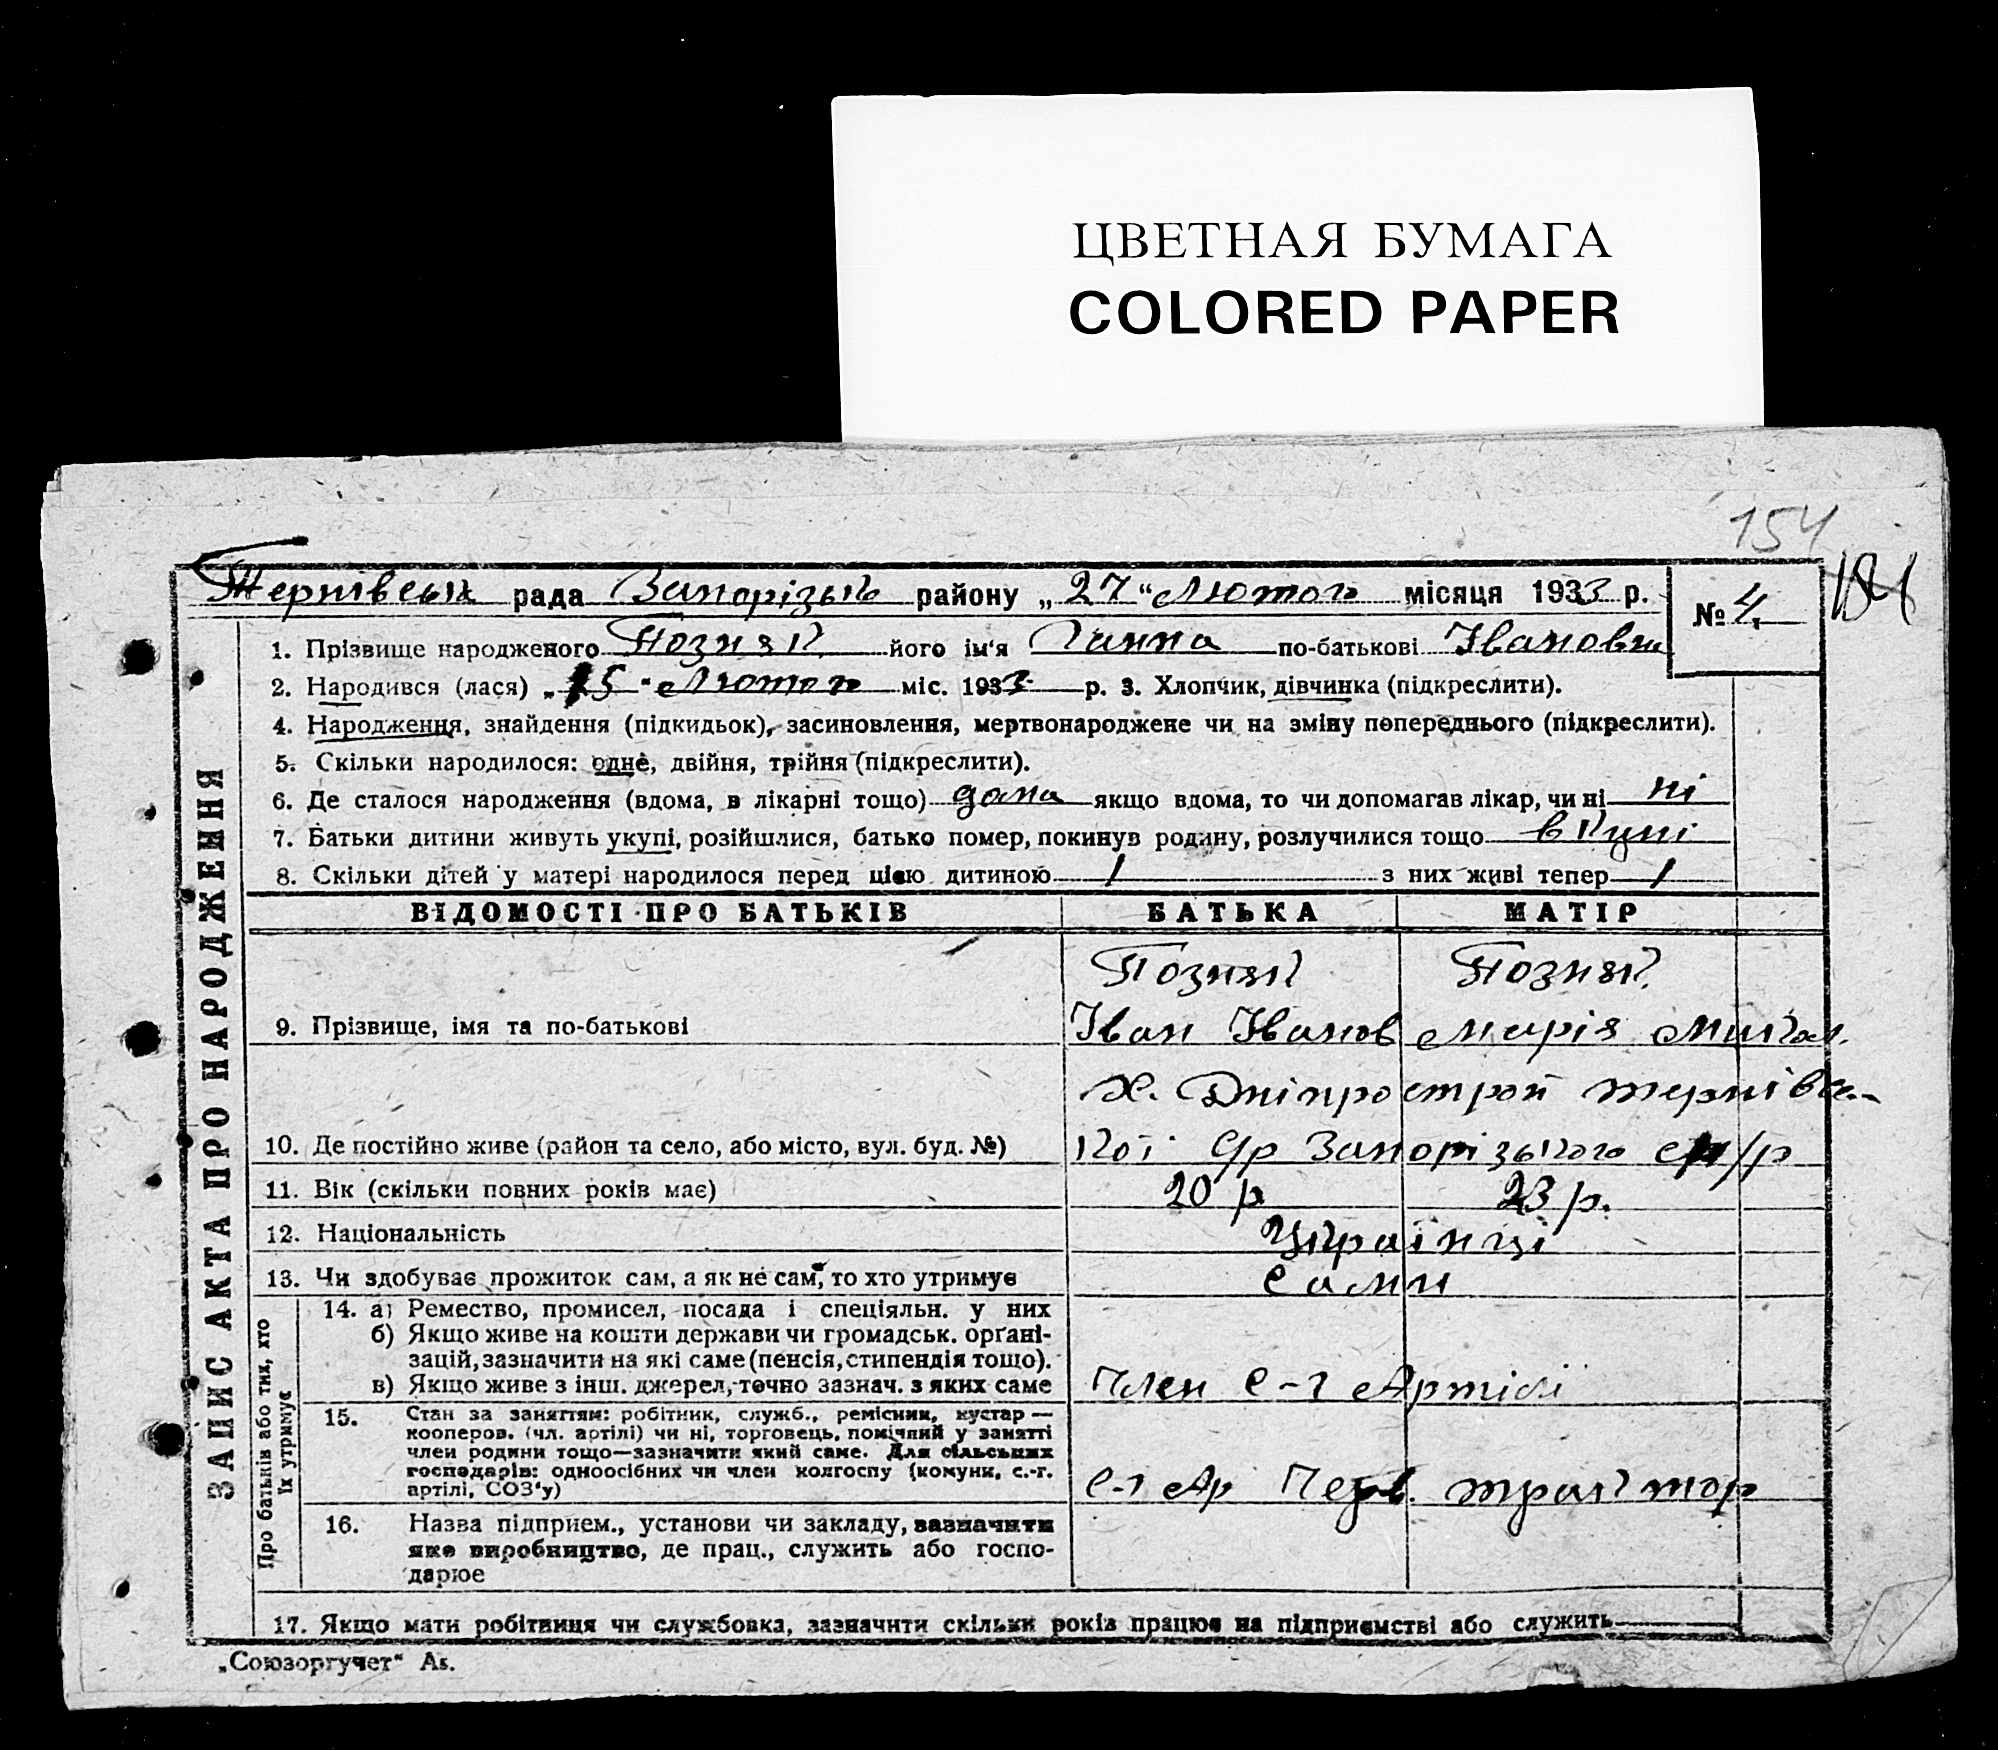 ЦВЕТНАЯ БУМАГА
COLORED PAPER
154
184
Тернівська рада Запорізьк району „27“ Лютого місяця 1933 р. № 4
1. Прізвище народженого Позняк його ім'я Ганна по-батькові Івановна
2. Народився (лася) „15“ Лютого міс. 1933 р. 3. Хлопчик, дівчинка (підкреслити).
4. Народження, знайдення (підкидьок), засиновлення, мертвонароджене чи на зміну попереднього (підкреслити).
5. Скільки народилося: одне, двійня, трійня (підкреслити).
6. Де сталося народження (вдома, в лікарні тощо) дома якщо вдома, то чи допомагав лікар, чи ні ні
7. Батьки дитини живуть укупі, розійшлися, батько помер, покинув родину, розлучилися тощо вкупі
8. Скільки дітей у матері народилося перед цією дитиною 1 з них живі тепер 1
ЗАПИС АКТА ПРО НАРОДЖЕННЯ
ВІДОМОСТІ ПРО БАТЬКІВ БАТЬКА МАТІР
Позняк Позняк
9. Прізвище, імя та по-батькові Іван Іванов Марія
Х. Дніпрострой Тернівсь-
10. Де постійно живе (район та село, або місто, вул. буд. №) кої Запорізького
11. Вік (скільки повних років має) 20 р 23 р.
12. Національність Українці
13. Чи здобуває прожиток сам, а як не сам, то хто утримує Сами
Про батьків або тих, хто їх утримує
14. а) Ремество, промисел, посада і спеціяльн. у них
б) Якщо живе на кошти держави чи громадськ. орґані-
зацій, зазначити на які саме (пенсія, стипендія тощо).
в) Якщо живе з інш. джерел, точно зазнач. з яких саме Член с-г Артілі
15. Стан за заняттям: робітник, служб., ремісник, кустар —
кооперов. (чл. артілі) чи ні, торговець, помічний у занятті
член родини тощо—зазначити який саме. Для сільських
господарів: одноосібних чи член колгоспу (комуни, с.-г.
артілі, СОЗ'у) с-г Ар Черв. трактор
16. Назва підприєм., установи чи закладу, зазначити
яке виробництво, де прац., служить або госпо-
дарює
17. Якщо мати робітниця чи службовка, зазначити скільки років працює на підприємстві або служить
„Союзоргучет“ Ак.